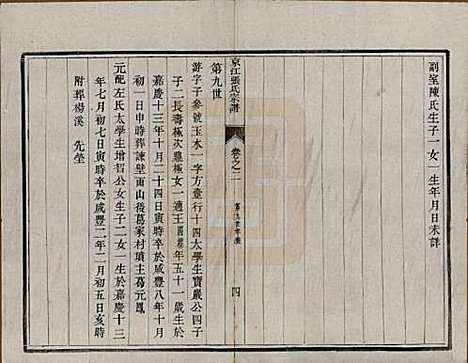 副室陳氏生子一女一生年月日未詳
京江張氏宗譜
卷之二
四
第九世
游字子參號玉水一字方壺行十四太學生寶嚴公四子
子二長壽極次彝極女一適王
年五十一歲生於
嘉慶十三年十月二十四日寅時卒於咸豐八年十月
初一日申時葬諫壁雨山後葛家村瑣主葛元鳳
元配左氏太學生增智公女生子二女一生於嘉慶十三
年七月初七日寅時卒於咸豐二年二月初五日亥時
附葬楊溪先塋